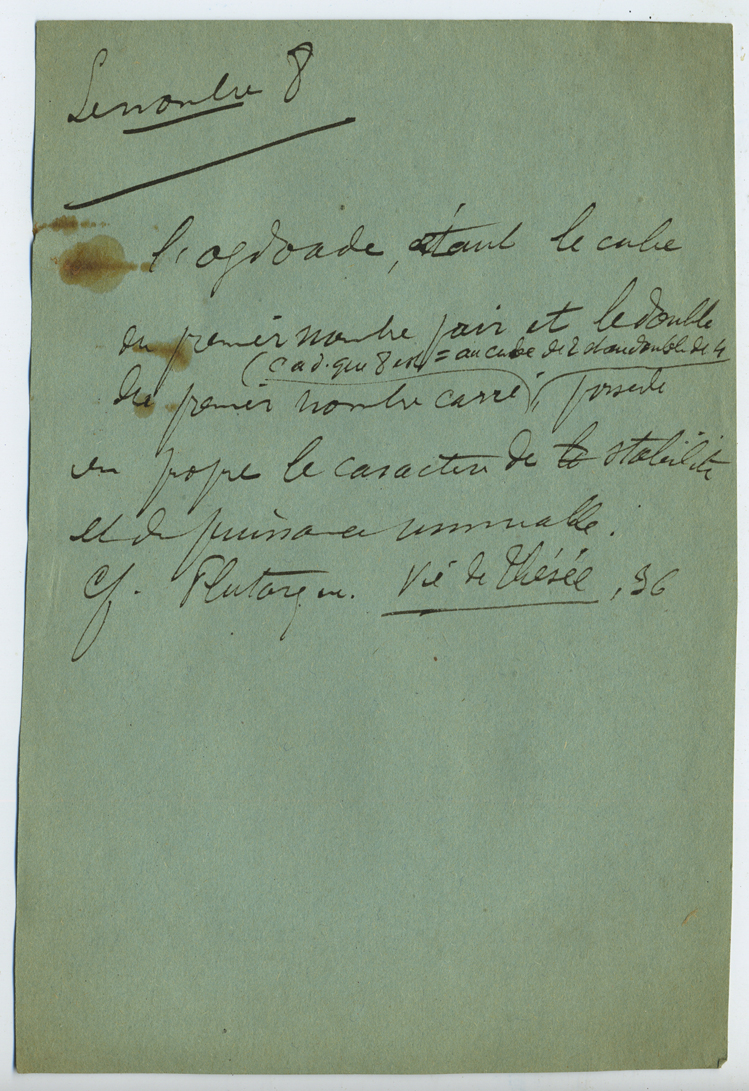 Le nombre 8
l'ogdoade, étant le cube
du premier nombre pair et le double
(c a d. que 8 est = au cube de 2 et au double de 4
du premier nombre carré), possède
en propre le caractère de stabilité
et de puissance immuable.
Cf. Plutarque. Vie de Thésée, 36